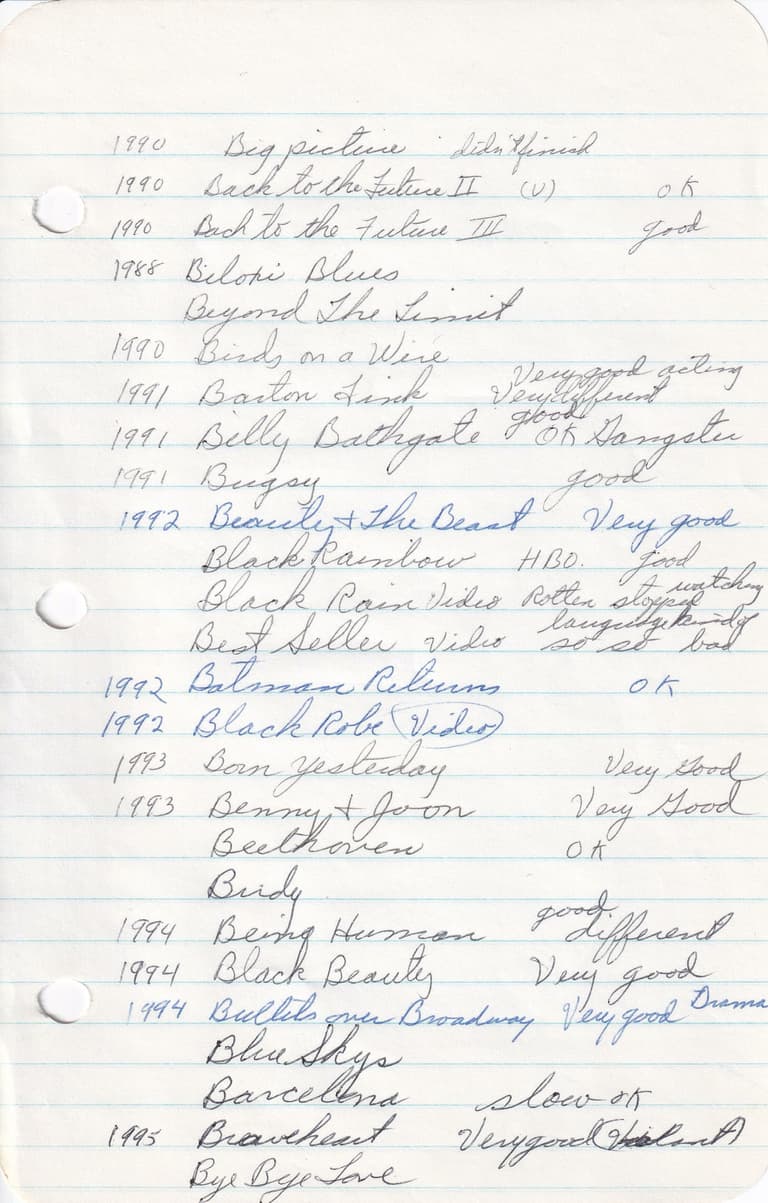 1990 Big picture didn't finish
1990 Back to the Future II (V) OK
1990 Back to the Future III good
1988 Biloxi Blues
Beyond The Limit
1990 Birds on a Wire
Very good acting
1991 Barton Fink Very different
good
1991 Billy Bathgate OK Gangster
1991 Bugsy good
1992 Beauty + The Beast Very good
Black Rainbow HBO. good
watching
Black Rain Video Rotten stopped
language kind of
Best Seller Video so so bad
1992 Batman Returns OK
1992 Black Robe (Video)
1993 Born Yesterday Very Good
1993 Benny + Joon Very Good
Beethoven OK
Birdy
good
1994 Being Human different
1994 Black Beauty Very good
1994 Bullits over Broadway Very good Drama
Blue Skys
Barcelona slow OK
1995 Braveheart Very good (Violent)
Bye Bye Love